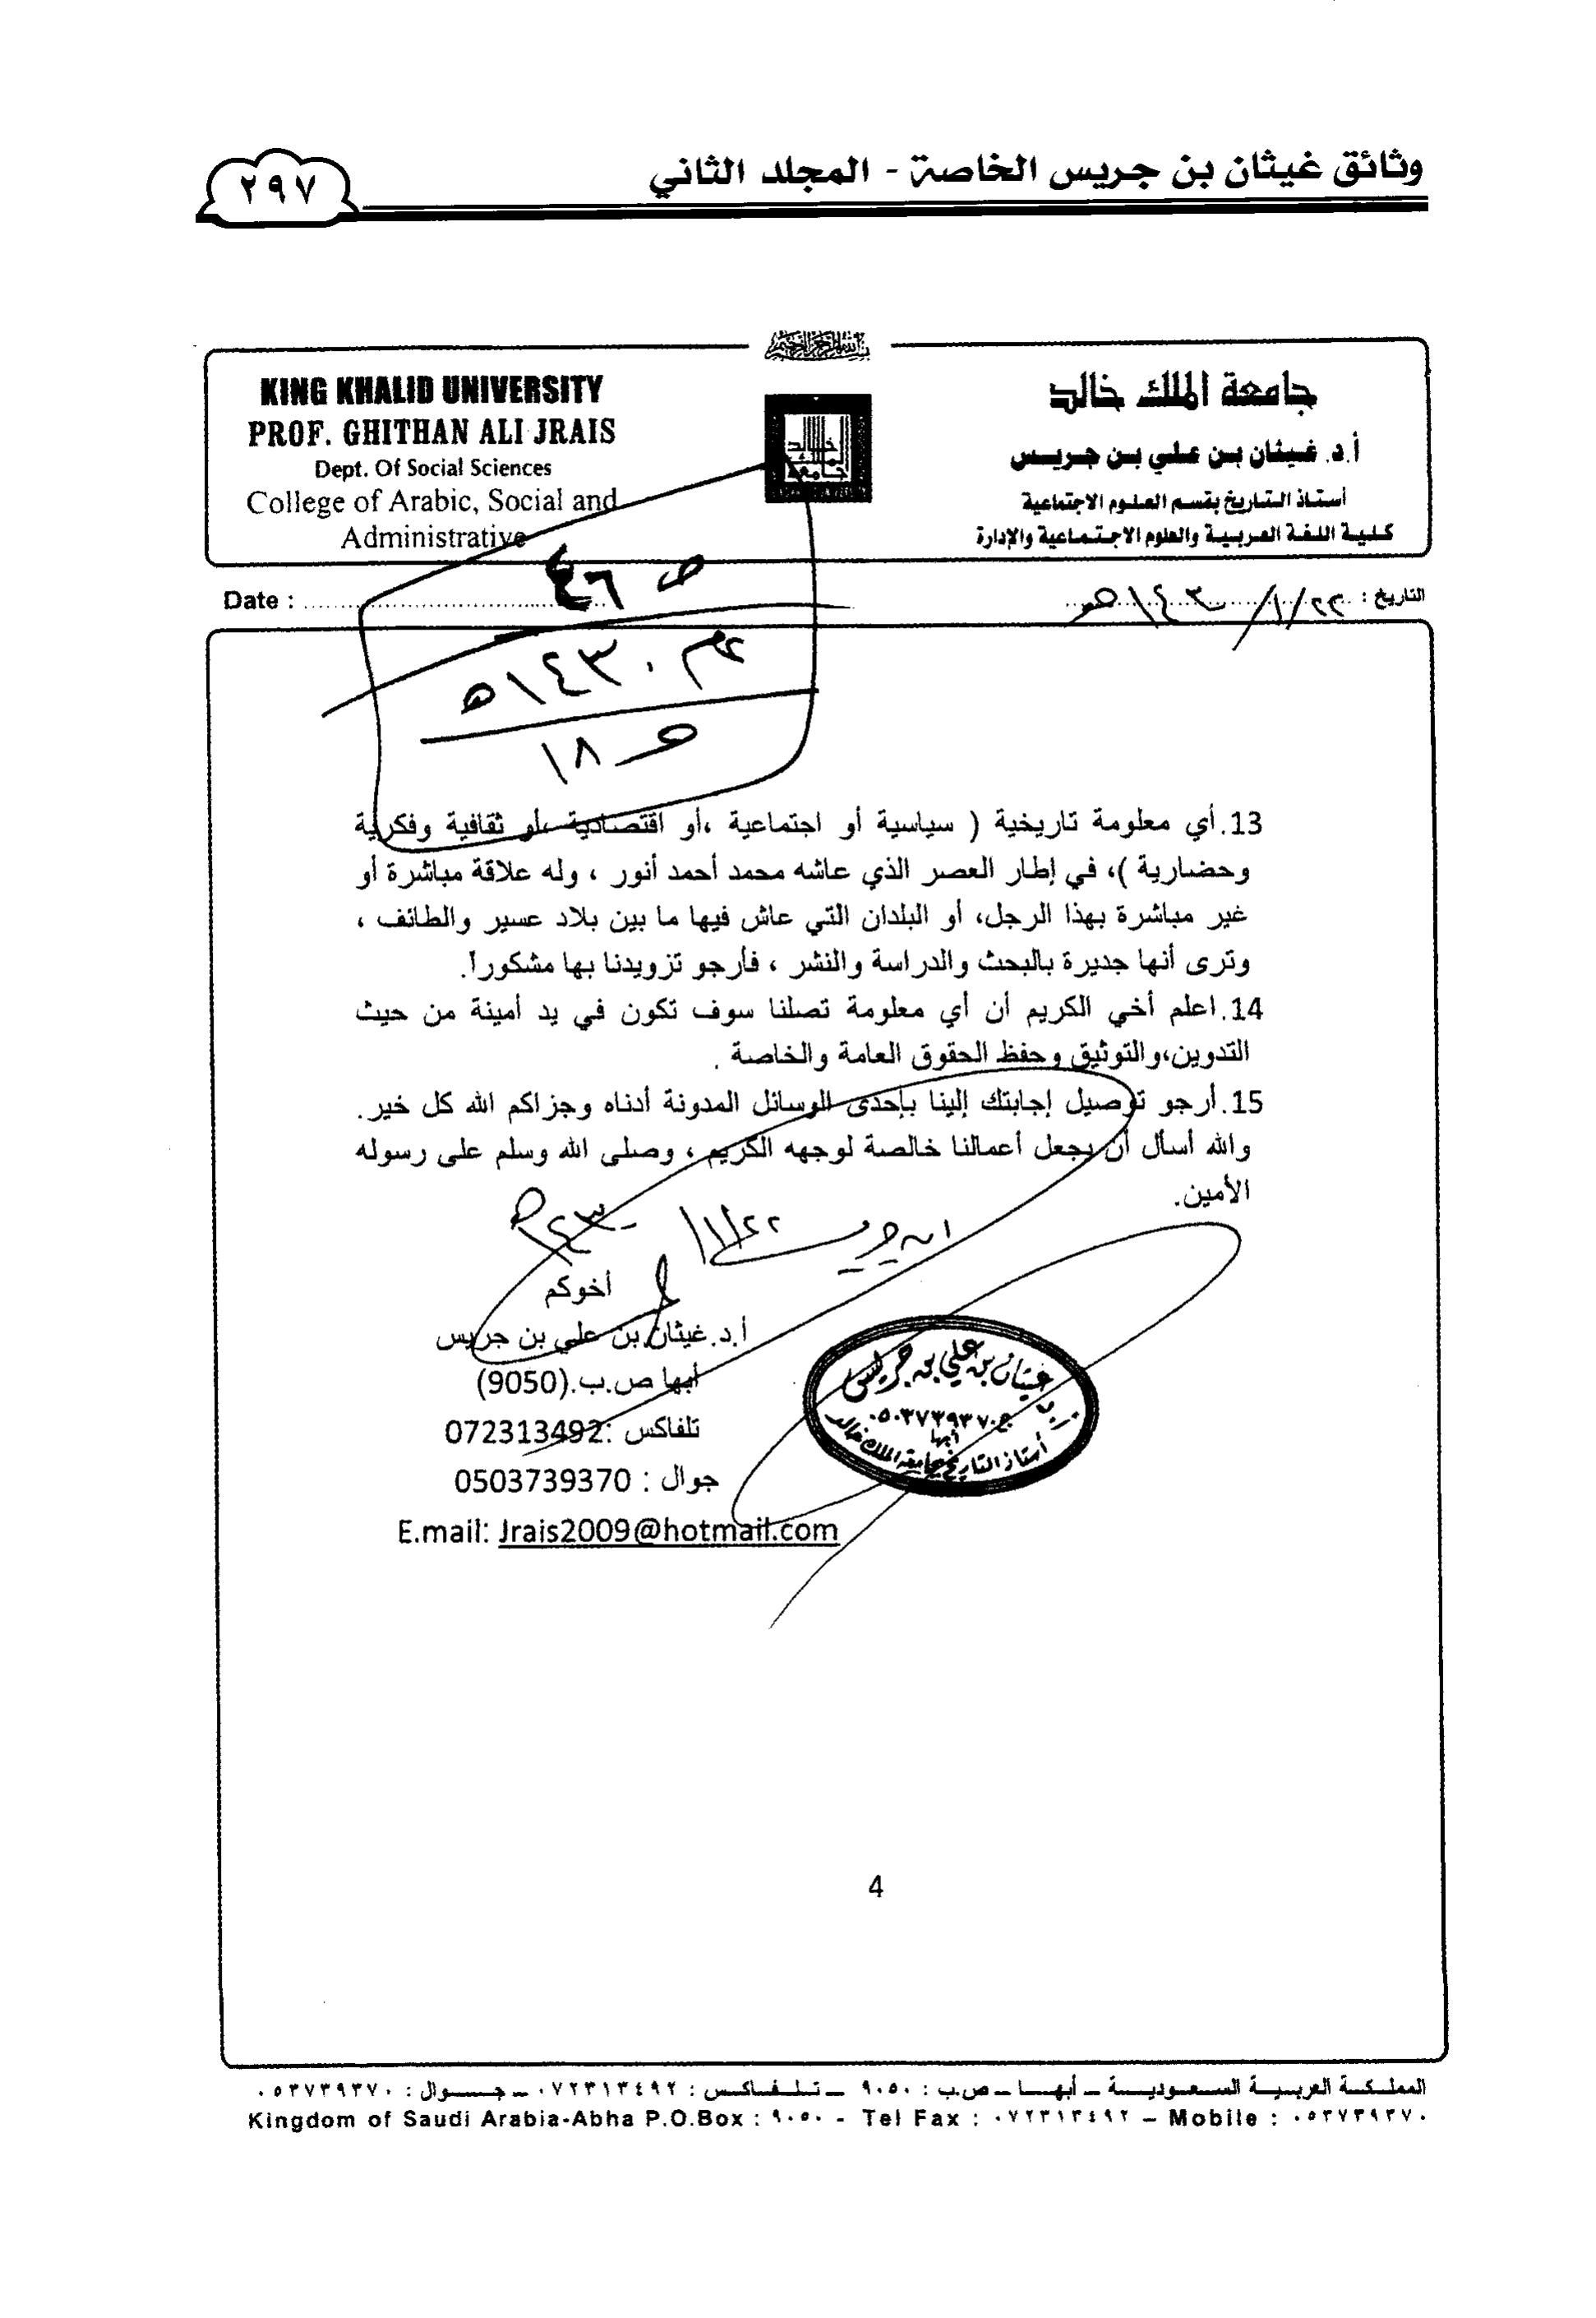 وثائق غيثان بن جريس الخاصة - المجلد الثاني
٢٩٧
KING KHALID UNIVERSITY
PROF. GHITHAN ALI JRAIS
Dept. Of Social Sciences
College of Arabic, Social and
Administrative
جامعة الملك خالد
أ.د. غيثان بن علي بن جريس
أستاذ التاريخ بقسم العلوم الاجتماعية
كلية اللغة العربية والعلوم الاجتماعية والإدارة
خالد
الملك
جامعة
التاريخ : ٢٢/١/١٤٣٠هـ
Date :
ص ٤٦
١٤٣٠هـ
١٨
13.أي معلومة تاريخية ( سياسية أو اجتماعية ،أو اقتصادية ،أو ثقافية وفكرية
وحضارية )، في إطار العصر الذي عاشه محمد أحمد أنور ، وله علاقة مباشرة أو
غير مباشرة بهذا الرجل، أو البلدان التي عاش فيها ما بين بلاد عسير والطائف ،
وترى أنها جديرة بالبحث والدراسة والنشر ، فأرجو تزويدنا بها مشكوراً.
14.اعلم أخي الكريم أن أي معلومة تصلنا سوف تكون في يد أمينة من حيث
التدوين،والتوثيق وحفظ الحقوق العامة والخاصة .
15.أرجو توصيل إجابتك إلينا بإحدى الوسائل المدونة أدناه وجزاكم الله كل خير.
والله أسأل أن يجعل أعمالنا خالصة لوجهه الكريم ، وصلى الله وسلم على رسوله
الأمين.
ابن جريس ٢٢/١/
أخوكم
أ.د.غيثان بن علي بن جريس
أبها ص.ب.(9050)
تلفاكس :072313492
جوال : 0503739370
E.mail: Jrais2009@hotmail.com
أ.د غيثان بن علي بن جريس
ج ٠٥٠٣٧٣٩٣٧٠
أبها
أستاذ التاريخ بجامعة الملك خالد
4
المملكة العربية السعودية – أبها – ص.ب : ٩٠٥٠ – تلفاكس : ٠٧٢٣١٣٤٩٢ – جوال : ٠٥٣٧٣٩٣٧٠
Kingdom of Saudi Arabia-Abha P.O.Box : ٩٠٥٠ - Tel Fax : ٠٧٢٣١٣٤٩٢ – Mobile : ٠٥٣٧٣٩٣٧٠